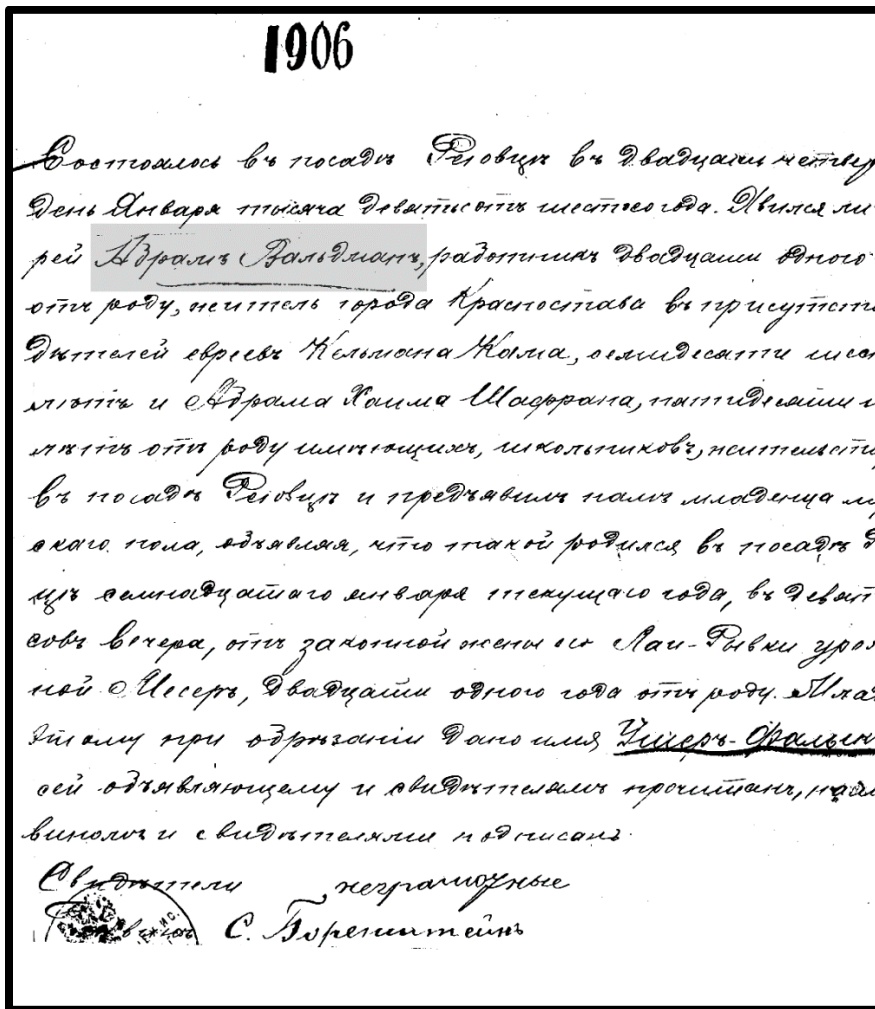 1906
Состоялось въ посадѣ Реіовцѣ въ двадцать четвер
день Января тысяча девятьсотъ шестого года. Явился ли
рей Абрамъ Вальдманъ, работникъ двадцати одного
отъ роду, житель города Красностава въ присутств
дѣтелей евреевъ Кельмана Кама, семидесяти шес
лѣтъ и Абрама Хаима Шафрана, пятидесяти
лѣтъ отъ роду имѣющихъ, школьниковъ, жительств
въ посадѣ Реіовцѣ и предъявилъ намъ младенца му
скаго пола, объявляя, что такой родился въ посадѣ Р
цѣ семнадцатаго января текущаго года, въ девят
совъ вечера, отъ законной жены его Лаи-Рывки урож
ной Месеръ, двадцати одного года отъ роду. Млад
этому при обрѣзаніи дано имя Ушеръ-Фалькъ
сей объявляющему и свидѣтелямъ прочитанъ, нами
виномъ и свидѣтелями подписанъ.
Свидѣтели неграмотные
С. Боренштейнъ